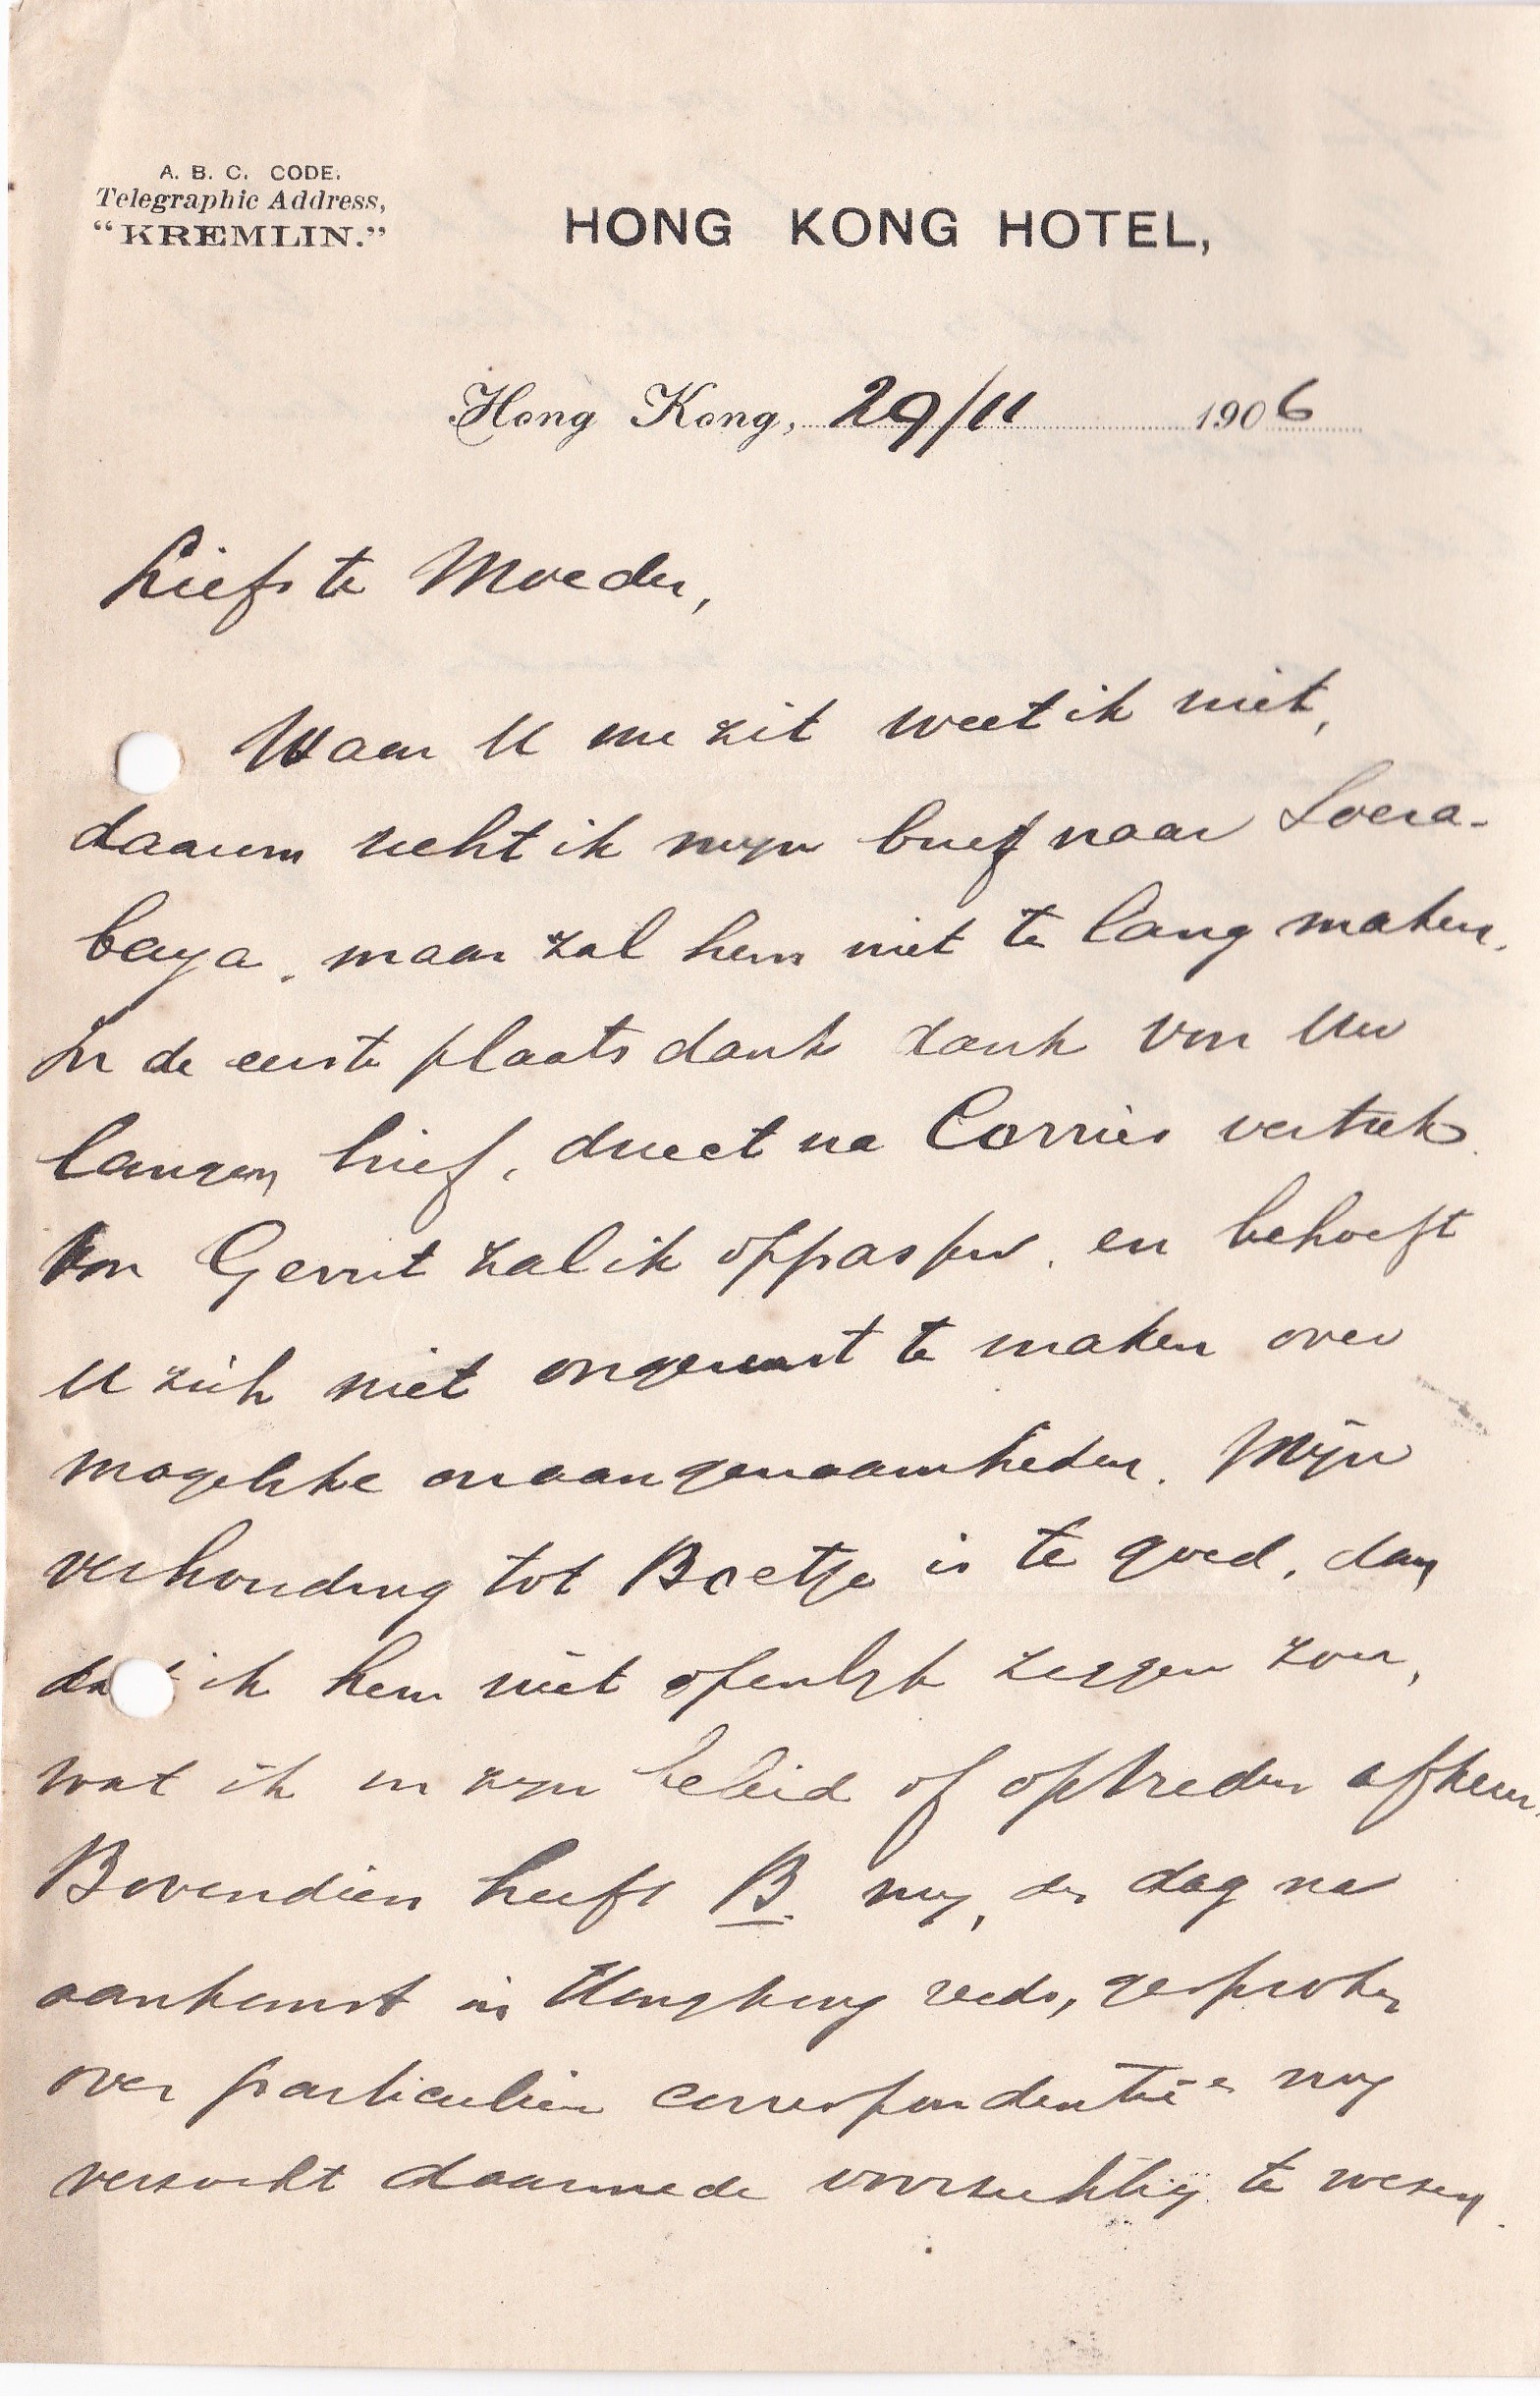 A. B. C. CODE.
Telegraphic Address,
"KREMLIN."
HONG KONG HOTEL,
Hong Kong, 29/11 1906
Liefste Moeder,
Waar U nu zit weet ik niet,
daarom richt ik mijn brief naar Soera-
baya, maar zal hem niet te lang maken.
In de eerste plaats dank dank voor Uw
langen brief, direct na Corries vertrek.
Voor Gerrit zal ik oppassen, en behoeft
U zich niet ongerust te maken over
mogelijke onaangenaamheden. Mijn
verhouding tot Boetje is te goed, dan
dat ik hem niet openlijk zeggen zou,
wat ik in zijn beleid of optreden afkeur.
Bovendien heeft B. mij, den dag na
aankomst in Hongkong reeds, gesproken
over particuliere correspondentie en mij
verzocht daarmede voorzichtig te wezen.